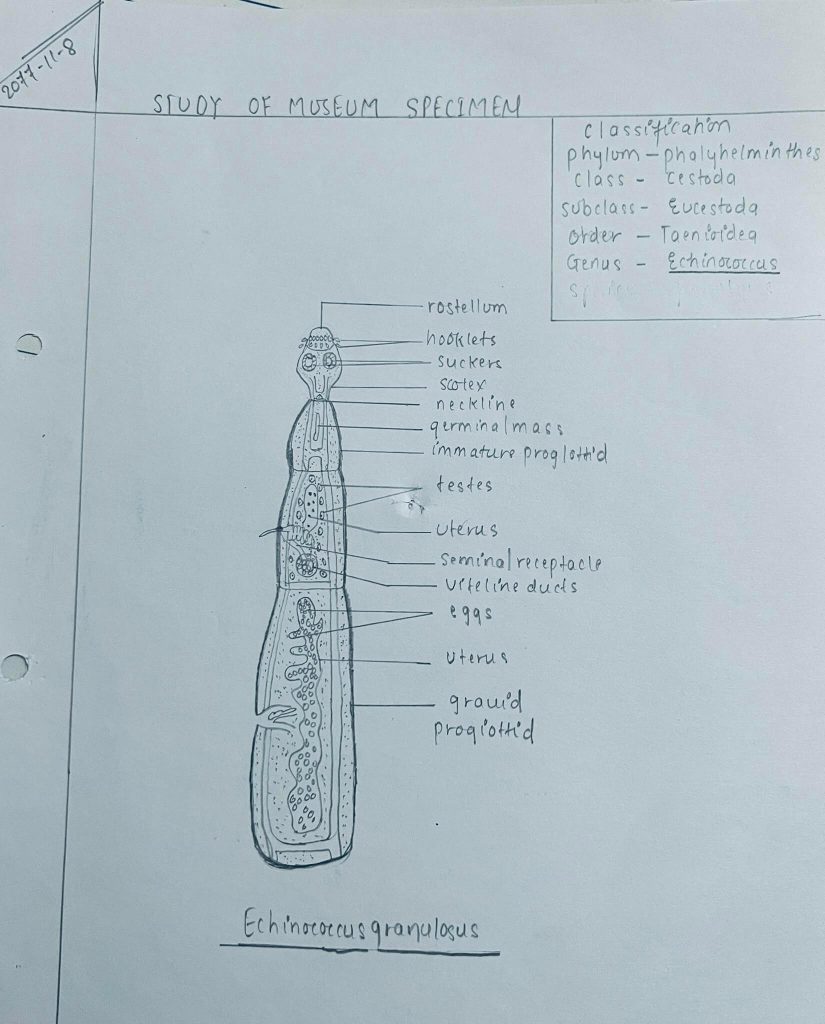 2077-11-8
STUDY OF MUSEUM SPECIMEN
classification
phylum - phalyhelminthes
class - cestoda
subclass - Eucestoda
order - Taenioidea
Genus - Echinococcus
rostellum
hooklets
suckers
scolex
neckline
germinal mass
immature proglottid
testes
uterus
seminal receptacle
viteline ducts
eggs
uterus
gravid
proglottid
Echinococcus granulosus